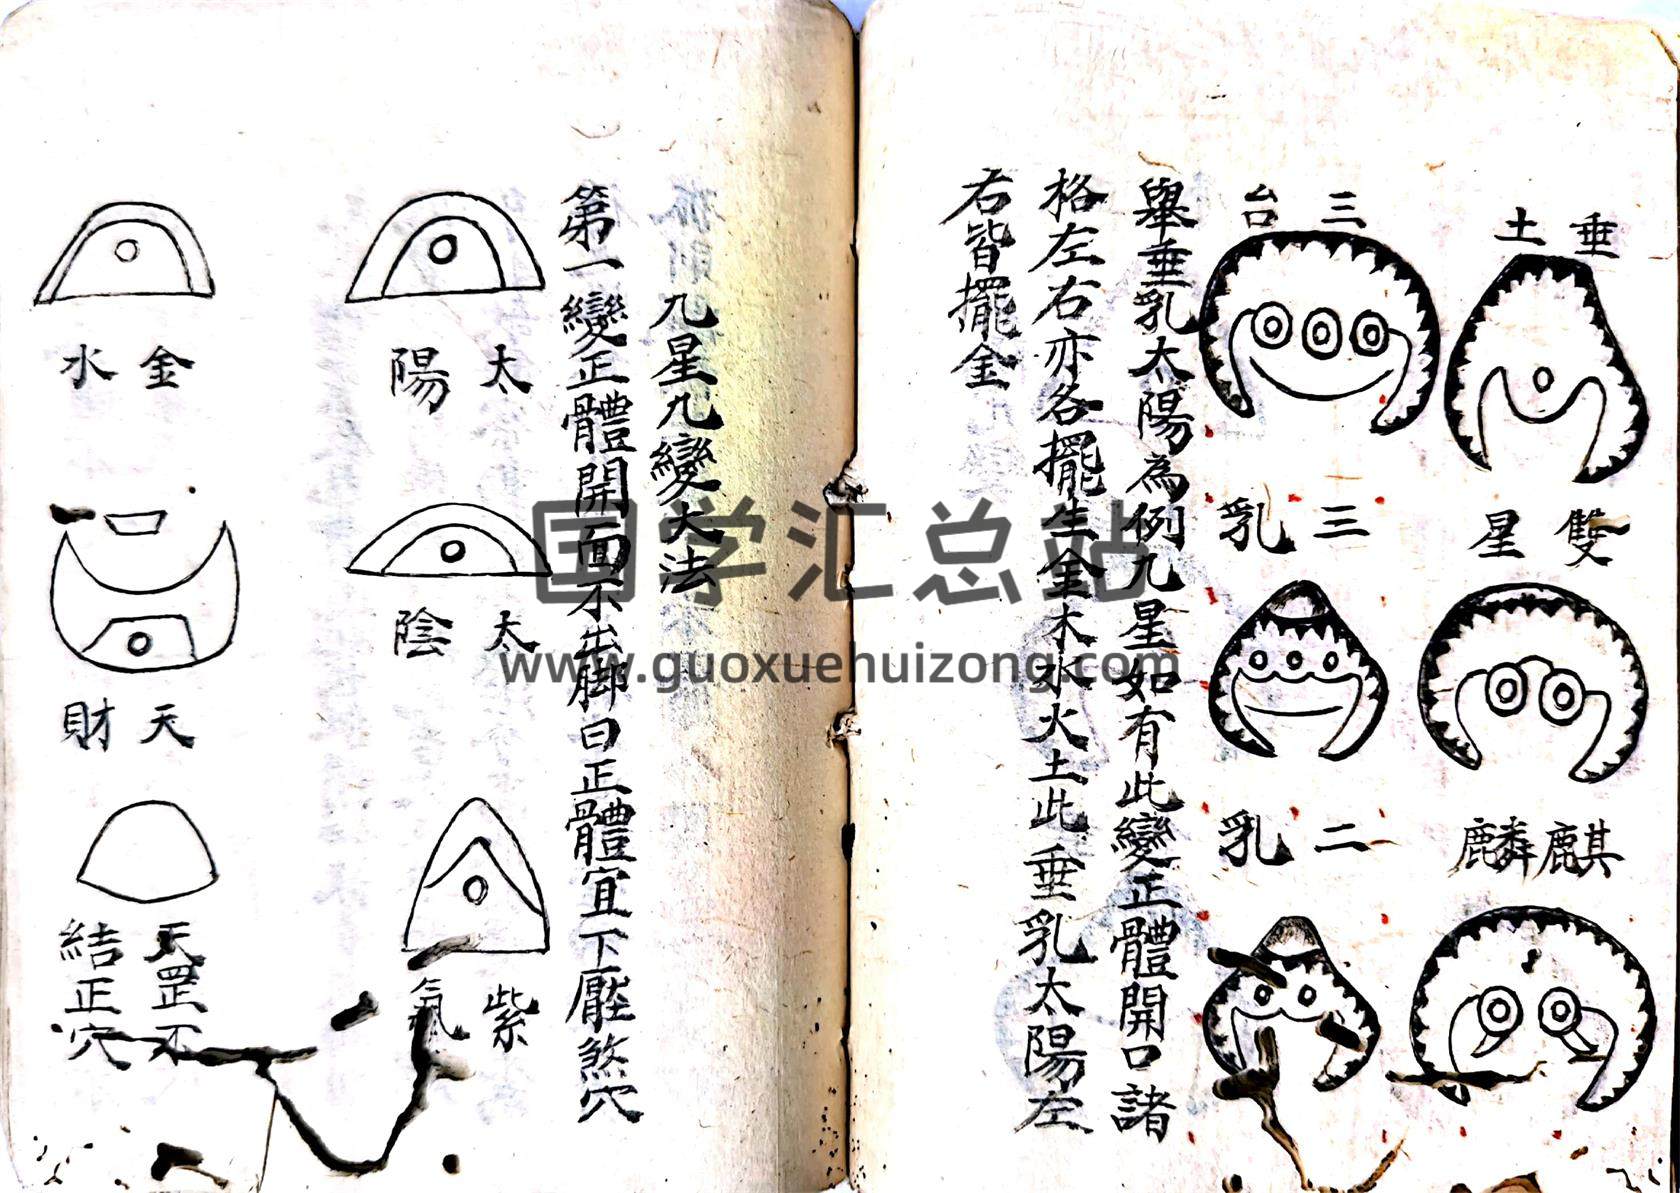 垂土
三台
雙星
三乳
麒麟
二乳
舉垂乳太陽為例九星如有此變正體開口諸
格左右亦各擺生金木水火土此垂乳太陽左
右皆擺金
九星九變大法
第一變正體開面不出脚曰正體宜下壓煞穴
太陽
太陰
紫氣
金水
天財
天罡不
結正穴
国学汇总站
www.guoxuehuizong.com